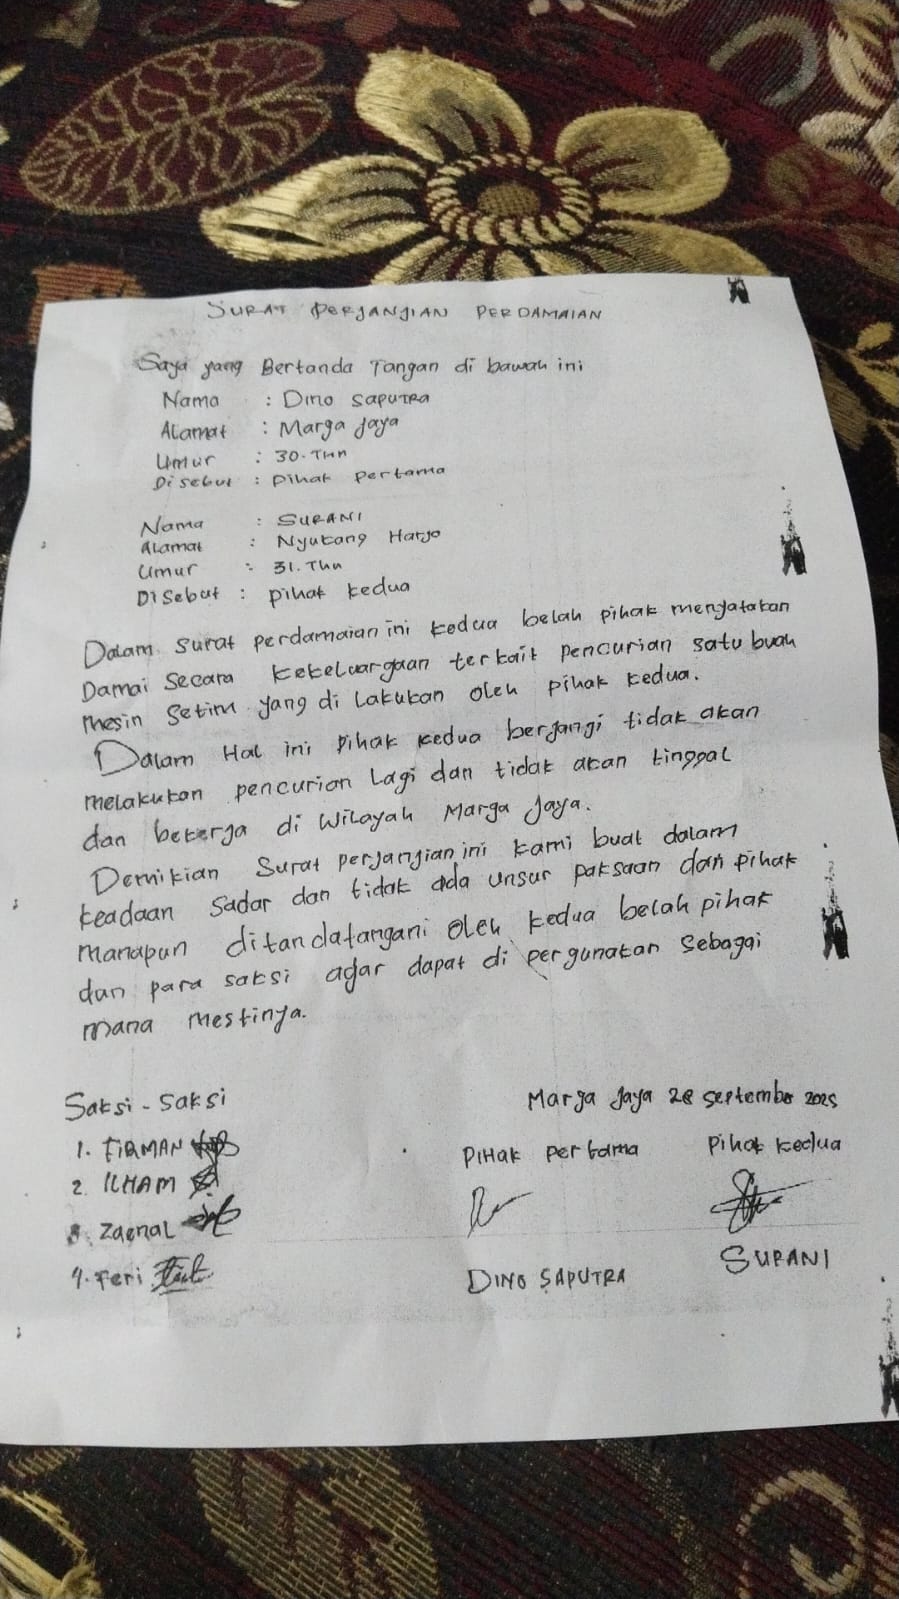 SURAT PERJANJIAN PERDAMAIAN
Saya yang Bertanda Tangan di bawah ini
Nama : Dino SAPUTRA
Alamat : Marga Jaya
Umur : 30.Thn
Disebut : Pihak Pertama
Nama : SURANI
Alamat : Nyukang Harjo
Umur : 31.Thn
Disebut : pihak kedua
Dalam surat perdamaian ini kedua belah pihak menyatakan
Damai Secara kekeluargaan terkait pencurian satu buah
mesin setim yang di Lakukan oleh pihak kedua.
Dalam Hal ini Pihak kedua berjangi tidak akan
melakukan pencurian Lagi dan tidak akan tinggal
dan bekerja di wilayah Marga Jaya.
Demikian Surat perjangian ini kami buat dalam
keadaan sadar dan tidak ada unsur paksaan dari pihak
manapun ditandatangani oleh kedua belah pihak
dan para saksi agar dapat di pergunakan sebagai
mana mestinya.
Saksi - Saksi
Marga Jaya 28 September 2025
1. FIRMAN
2. ILHAM
3. Zaenal
4. Feri
PIHAK Pertama
Pihak kedua
DINO SAPUTRA
SURANI